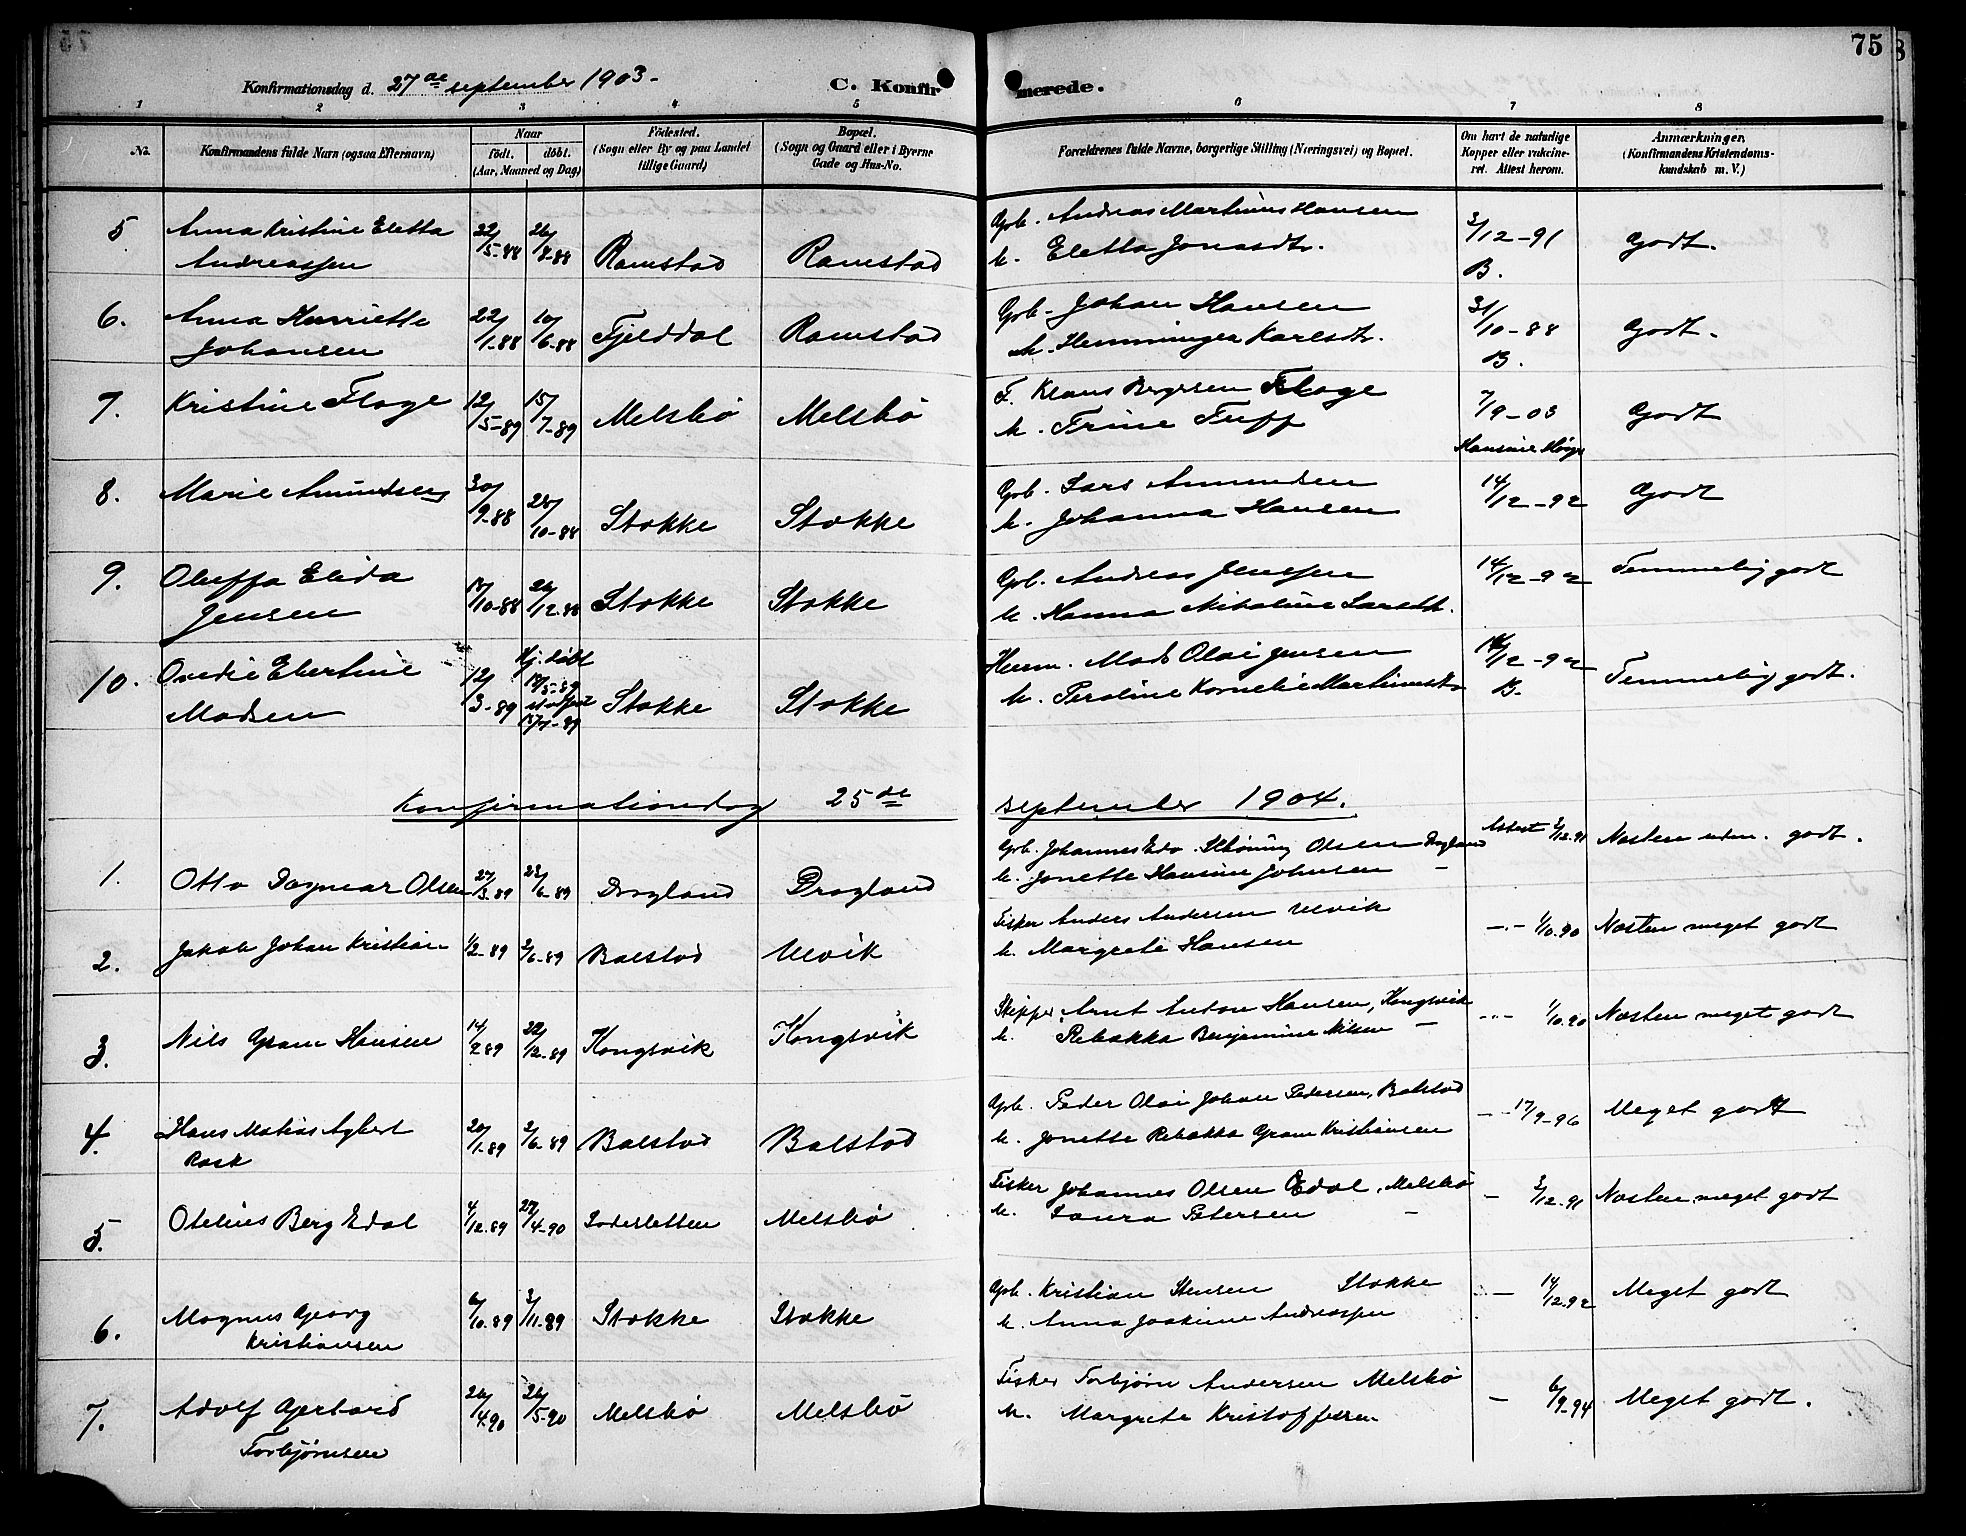 75
Konfirmationsdag d. 27de september 1903.
C. Konfirmerede.
1 2 3 4 5 6 7 8
No. Konfirmandens fulde Navn (ogsaa Efternavn) Naar født. døbt. (Aar, Maaned og Dag) Fødested. (Sogn eller By og paa Landet tillige Gaard) Bopæl. (Sogn og Gaard eller i Byerne Gade og Hus-No. Forældrenes fulde Navne, borgerlige Stilling (Næringsvei) og Bopæl. Om havt de naturlige Kopper eller vakcineret. Attest herom. Anmærkninger, (Konfirmandens Kristendomskundskab m. V.)
5 Anna Kristine Eletta 22/5-88 Ramstad Ramstad Gbr. Andreas Martinus Hansen 3/12-91 Godt.
Andreassen M. Eletta Jonasdtr. B.
6. Anna Henriette 22/1-88 10/6-88 Fjelddal Ramstad Gbr. Johan Hansen 31/10-88 Godt.
Johansen M. Hemminger Karlsdtr. B.
7. Kristine Flage 12/5-89 15/7-89 Melsbö Melsbö F. Klaus Flage 7/9-03 Godt
M. Trine Tuff Hansine
8. Marie Amundsen 30/9-88 28/10-88 Stokke Stokke Gbr. Lars Amundsen 14/12-92 Godt
M. Johanna Hansen
9. Oluffa Elida 17/10-88 26/12-88 Stokke Stokke Gbr. Andreas Jenssen 14/12-92 Temmelig godt
Jensen M. Hanna Nikoline Larsdtr.
10. Ovedie Ebertine 12/3-89 Hj. døbt Stokke Stokke Husm. Mads Olai Jensen 14/12-92 Temmelig godt.
Madsen M. Peroline Kornelie Martinusdtr B.
Konfirmationsdag 25de september 1904.
1. Otto Dagmar Olsen 27/3-89 23/6-89 Dragland Dragland Gbr. Johannes Edv. Olsen Dragland Attest 2/12.91 Næsten udm. godt.
M. Jonette Hansine Johnsen –
2. Jakob Johan Kristian 1/2-89 2/6-89 Balstad Ulvik Fisker Anders Andersen Ulvik –"– 1/10.90 Næsten meget godt
M. Margrete Hansen
3. Nils Gram Hansen 22/12-89 Kongsvik Kongsvik Skipper Arnt Anton Hansen, Kongsvik –"– 1/10.90 Næsten meget godt
M. Rebakka Benjamine Nilsen –
4. Hans Matias Agbert 20/1-89 2/6-89 Balstad Balstad Gbr. Peder Olai Johan Pedersen, Balstad –"– 17/9-96 Meget godt
Rask M. Jonette Rebakka Gram Kristiansen
5. Otelius Berg Edal 4/12.89 27/4-90 Melsbö Fisker Johannes Olsen Edal, Melsbö – 2/12-91 Næsten meget godt
M. Laura Petersen –
6. Magnus Georg 6/10.89 3/11-89 Stokke Stokke Gbr. Kristian Stensen Stokke – 14/12-92 Meget godt
Kristiansen M. Anna Joakime Andreassen
7. Adolf Gerhard 26/4.90 26/5-90 Melsbö Melsbö Fisker Torbjörn Andersen Melsbö – 6/9-94 Meget godt.
Torbjörnsen M. Margrete Kristoffersen